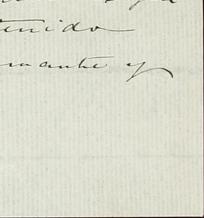 tenido
mante y